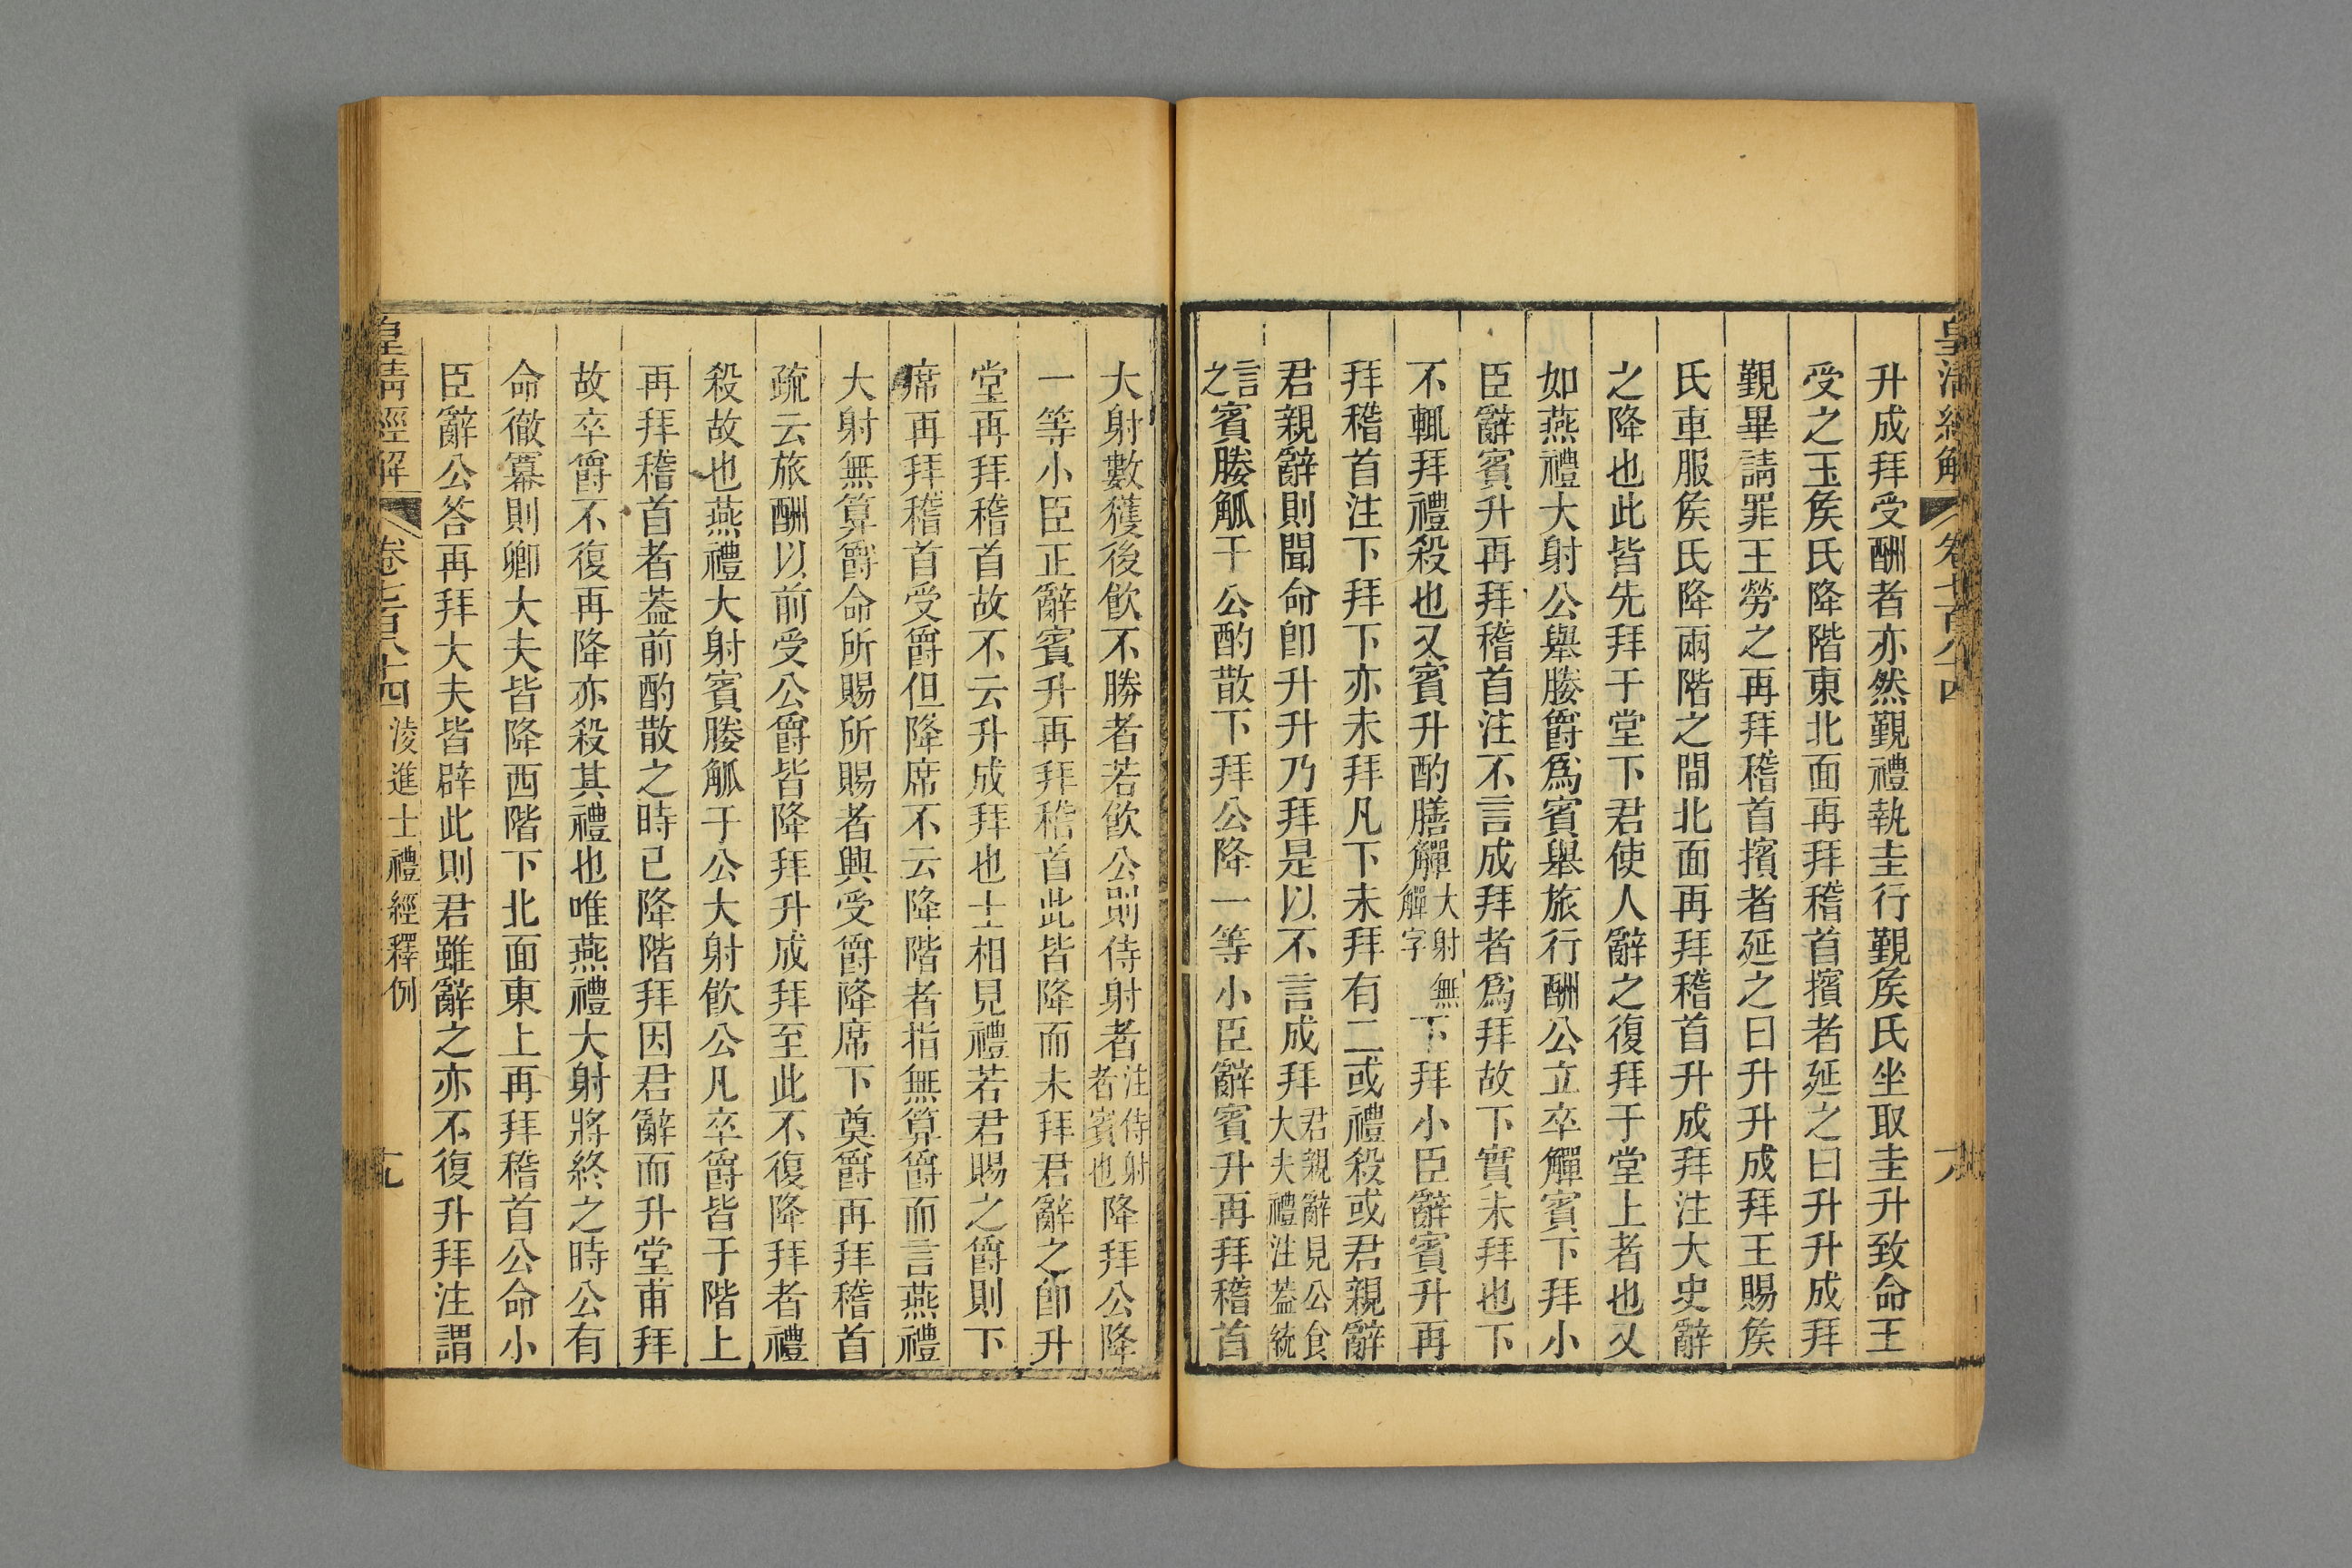 皇清經解 卷七百八十四
升成拜受酬者亦然覲禮執圭行覲矦氏坐取圭升致命王
受之玉矦氏降階東北面再拜稽首擯者延之曰升升成拜
覲畢請罪王勞之再拜稽首擯者延之曰升升成拜王賜矦
氏車服矦氏降兩階之間北面再拜稽首升成拜注大史辭
之降也此皆先拜于堂下君使人辭之復拜于堂上者也又
如燕禮大射公舉媵爵爲賓舉旅行酬公立卒觶賓下拜小
臣辭賓升再拜稽首注不言成拜者爲拜故下實未拜也下
不輒拜禮殺也又賓升酌膳觶大射無觶字下拜小臣辭賓升再
拜稽首注下拜下亦未拜凡下未拜有二或禮殺或君親辭
君親辭則聞命卽升升乃拜是以不言成拜君親辭見公食大夫禮注葢統
言之賓媵觚于公酌散下拜公降一等小臣辭賓升再拜稽首
大射數獲後飮不勝者若飮公則侍射者注侍射者賓也降拜公降
一等小臣正辭賓升再拜稽首此皆降而未拜君辭之卽升
堂再拜稽首故不云升成拜也士相見禮若君賜之爵則下
席再拜稽首受爵但降席不云降階者指無算爵而言燕禮
大射無算爵命所賜所賜者興受爵降席下奠爵再拜稽首
疏云旅酬以前受公爵皆降拜升成拜至此不復降拜者禮
殺故也燕禮大射賓媵觚于公大射飮公凡卒爵皆于階上
再拜稽首者葢前酌散之時已降階拜因君辭而升堂甫拜
故卒爵不復再降亦殺其禮也唯燕禮大射將終之時公有
命徹冪則卿大夫皆降西階下北面東上再拜稽首公命小
臣辭公答再拜大夫皆辟此則君雖辭之亦不復升拜注謂
皇清經解 卷七百八十四 淩進士禮經釋例